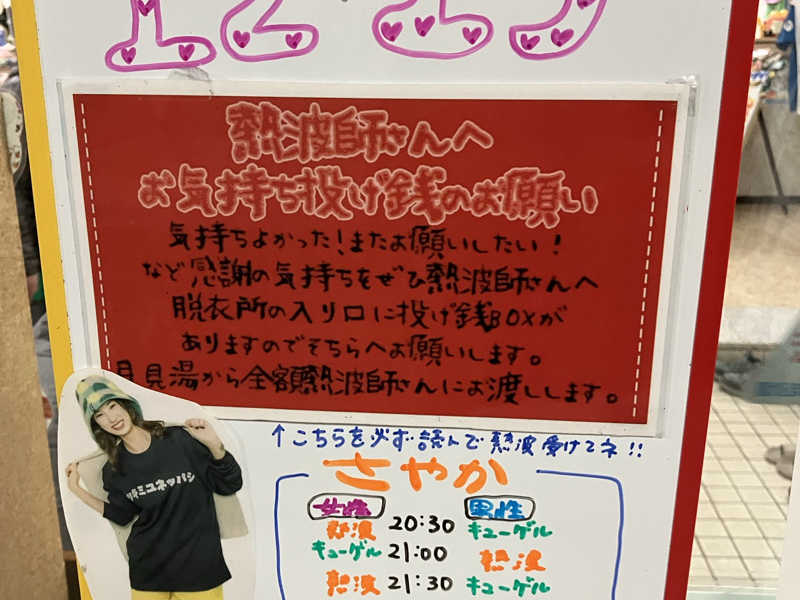 12 23
熱波師さんへ
お気持ち投げ銭のお願い
気持ちよかった!またお願いしたい!
など感謝の気持ちをぜひ熱波師さんへ
脱衣所の入り口に投げ銭BOXが
ありますのでそちらへお願いします。
月見湯から全額熱波師さんにお渡しします。
↑こちらを必ず読んで熱波受けてネ!!
さやか
女性 男性
熱波 20:30 キューゲル
キューゲル 21:00 熱波
熱波 21:30 キューゲル
ミユネッパシ